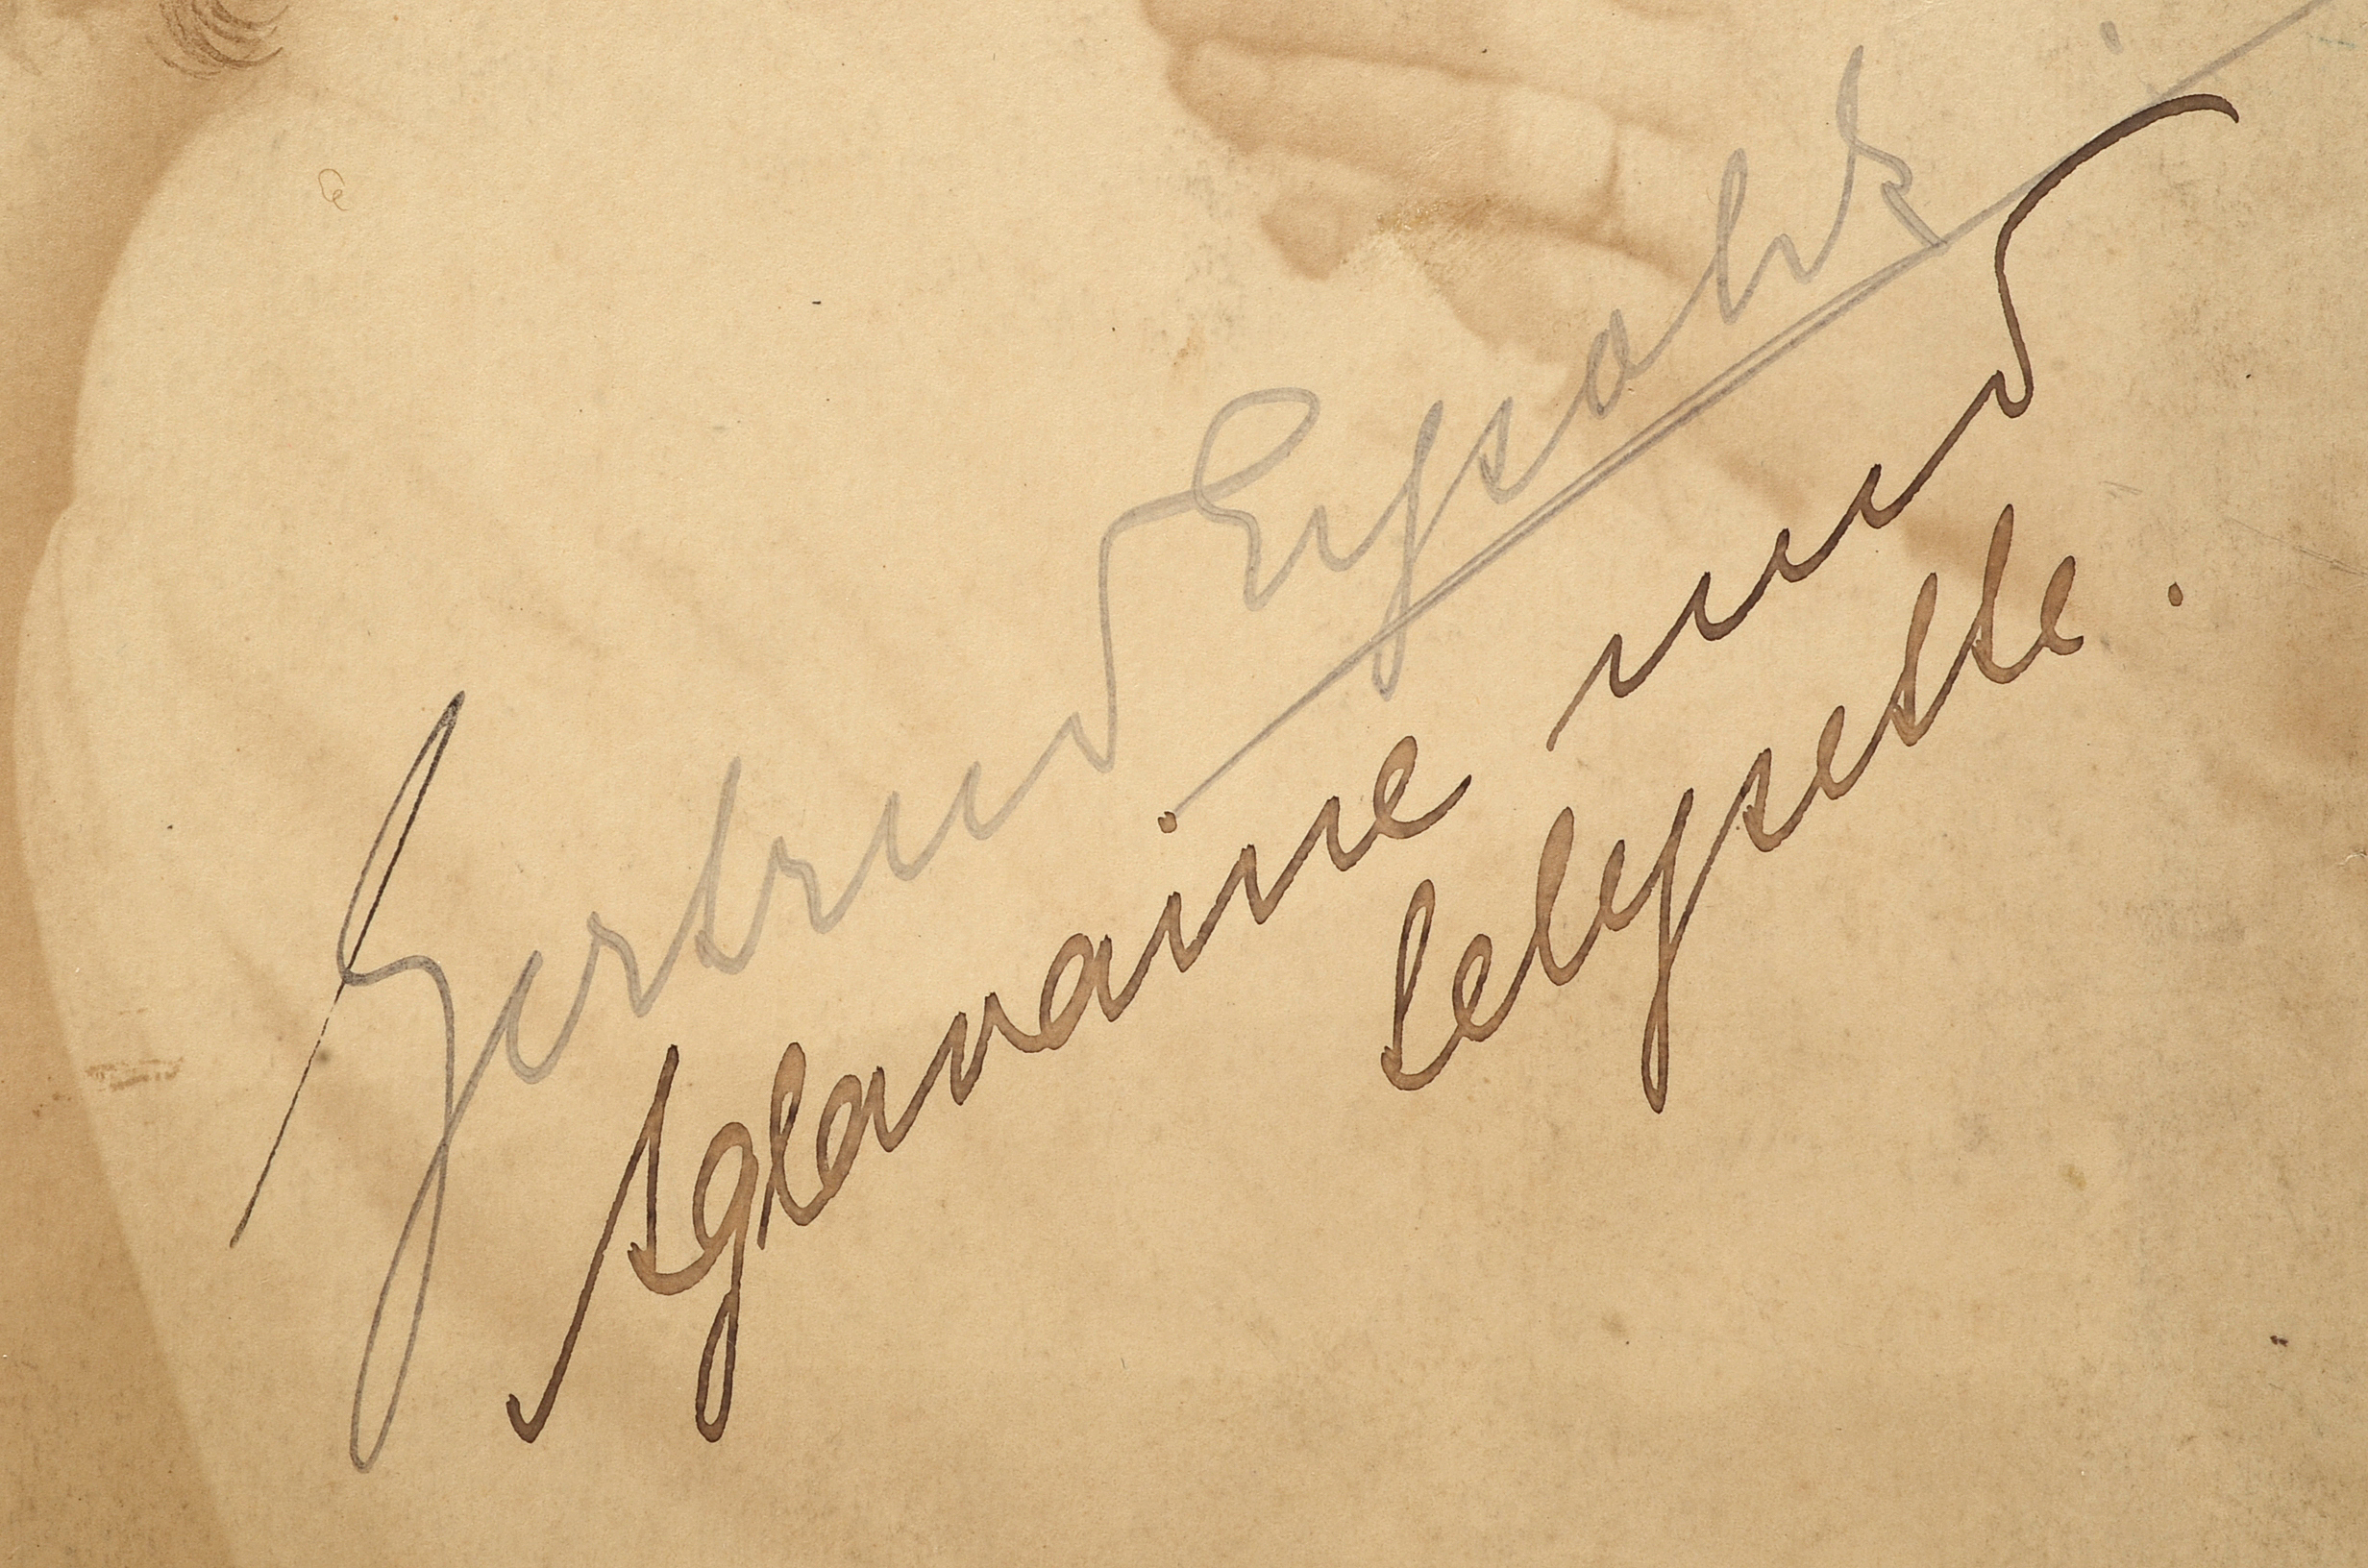 Gertrud Eysoldt.
Aglavaine und
Selysette.